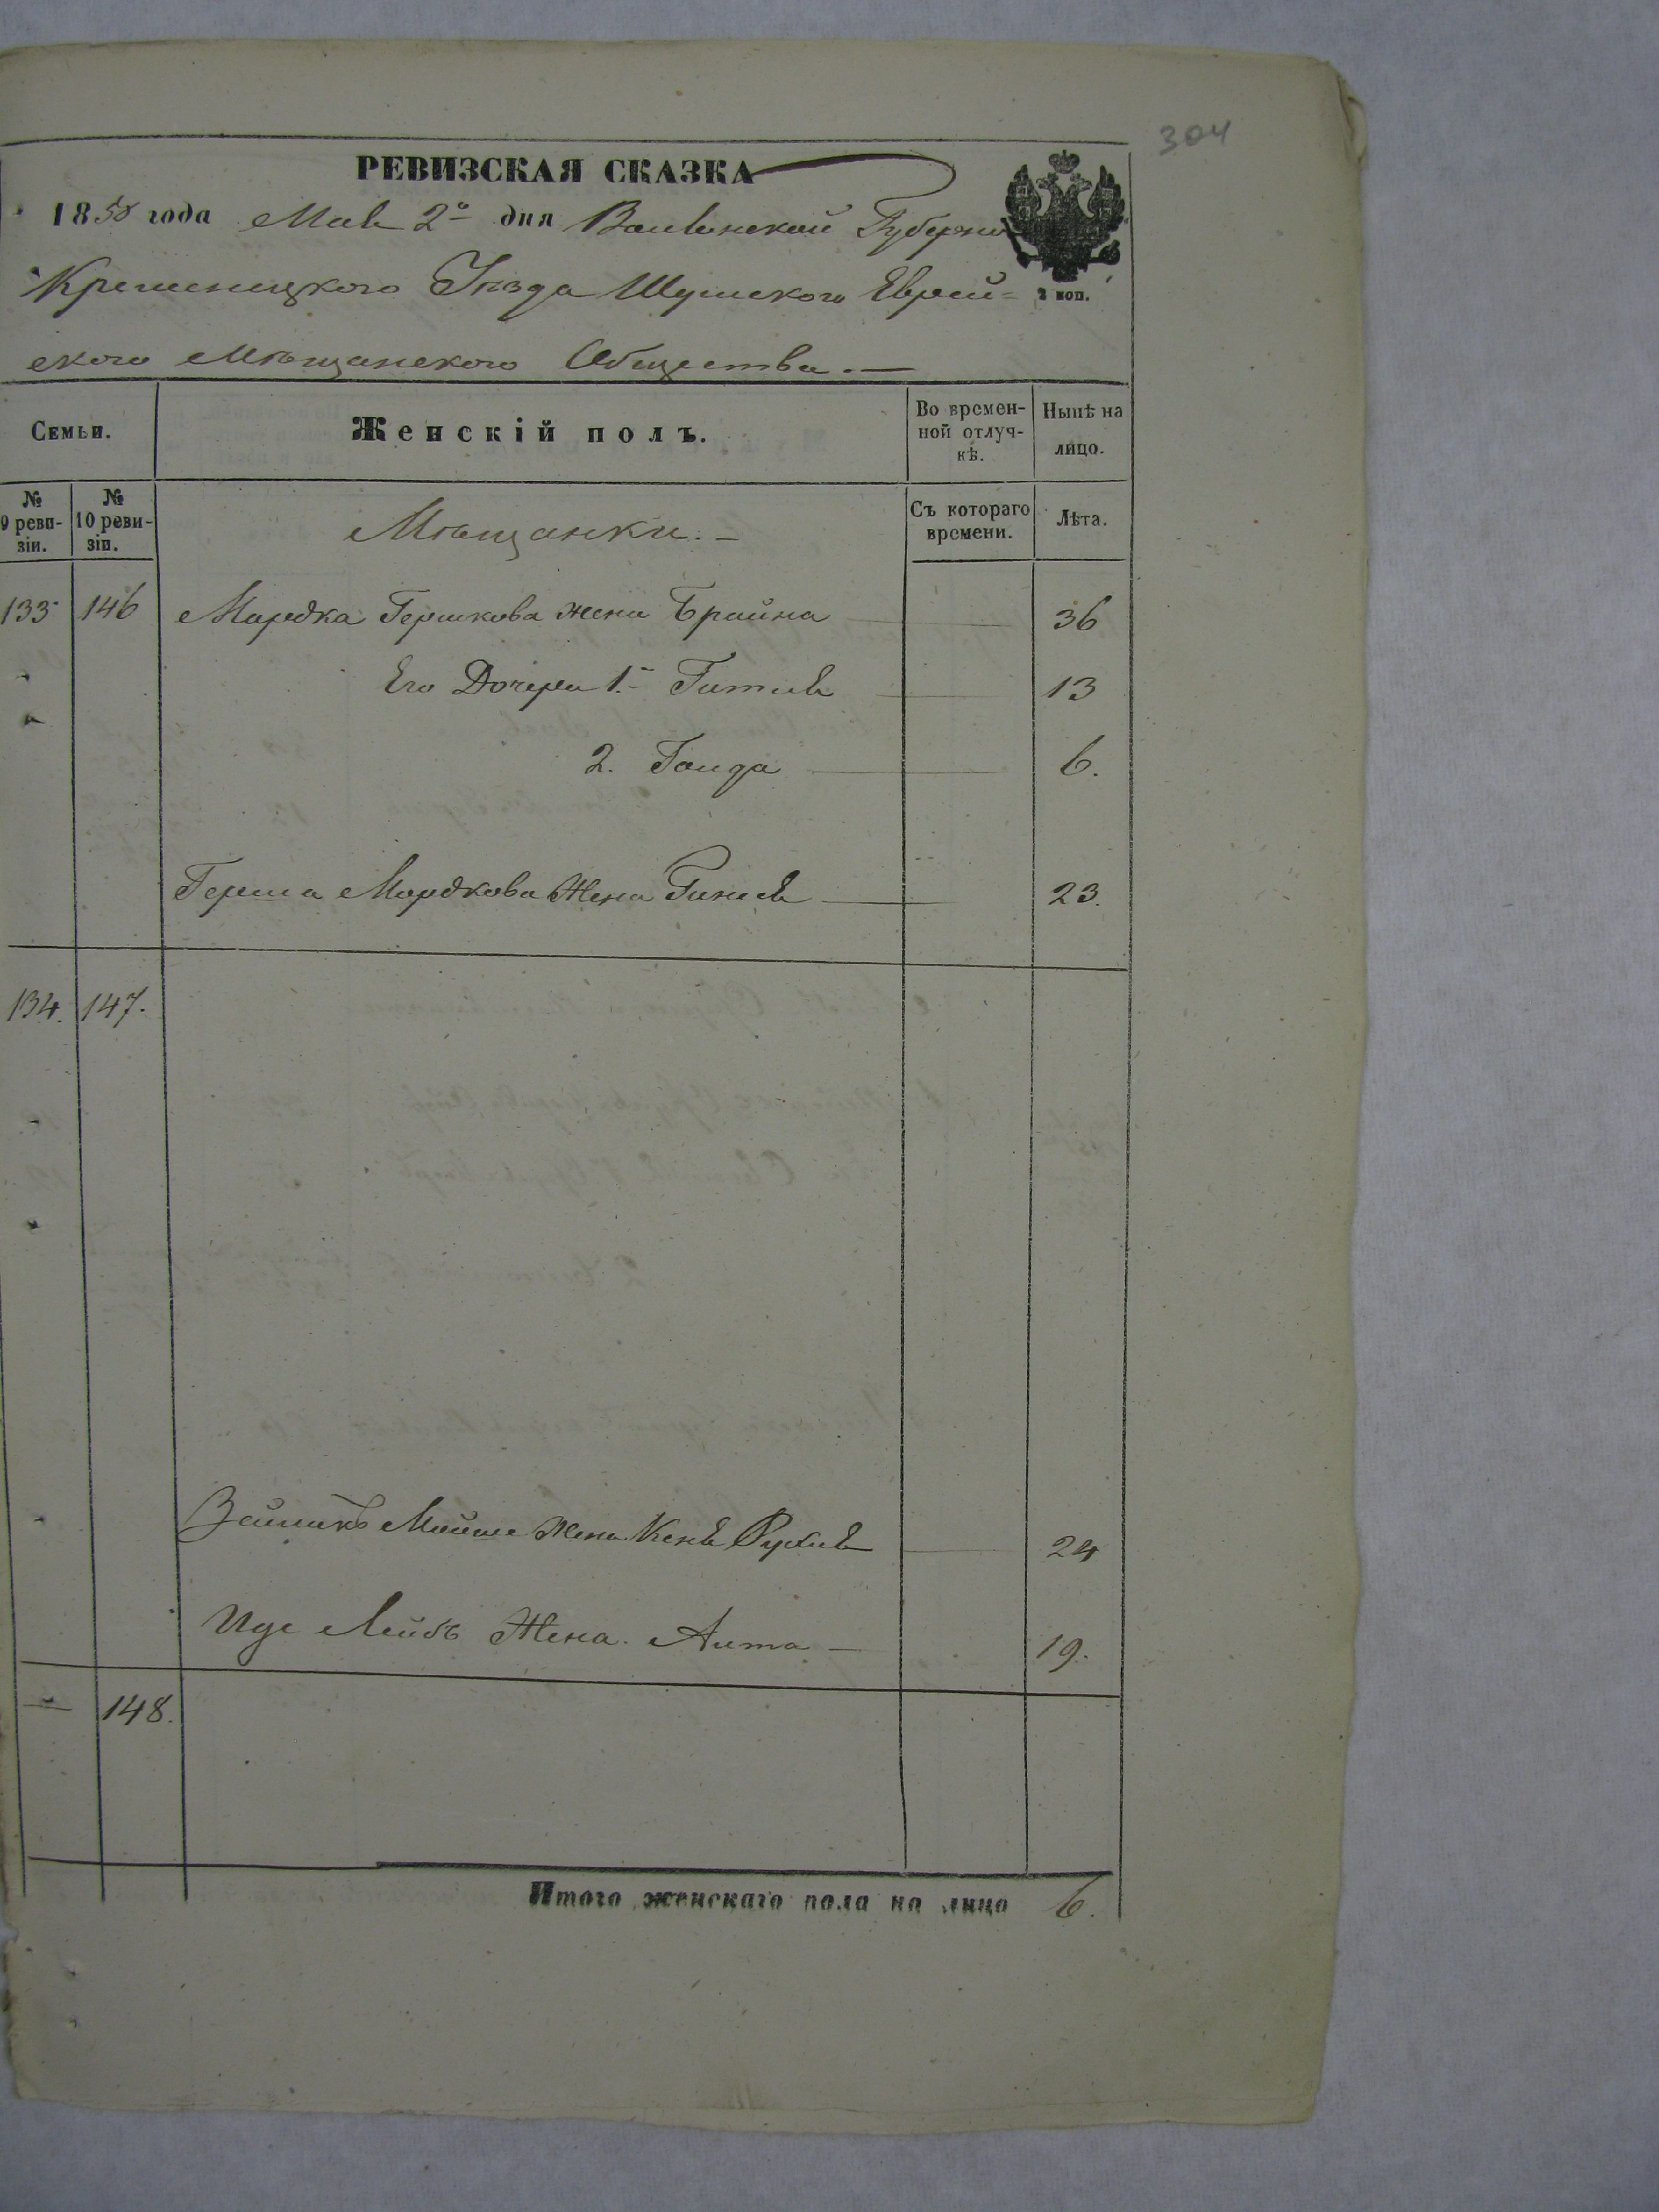 304
РЕВИЗСКАЯ СКАЗКА
1858 года Мая 2го дня Волынской Губерніи
Кременецкого Уѣзда Шумского Еврей=
2 коп.
ского Мѣщанского Общества.—
Семьи.
Женскій полъ.
Во времен-
ной отлуч-
кѣ.
Нынѣ на
лицо.
№
9 реви-
зіи.
№
10 реви-
зіи.
Мѣщанки.—
Съ котораго
времени.
Лѣта.
133 146 Мордка Гершкова жена Брайна — 36
Его Дочери 1. Гитля — 13
2. Голда — 6.
Герша Мордкова Жена — 23.
134. 147.
Мойше Жена Рухля — 24
Иде Лейбъ Жена — 19.
— 148.
Итого женскаго пола на лицо 6.